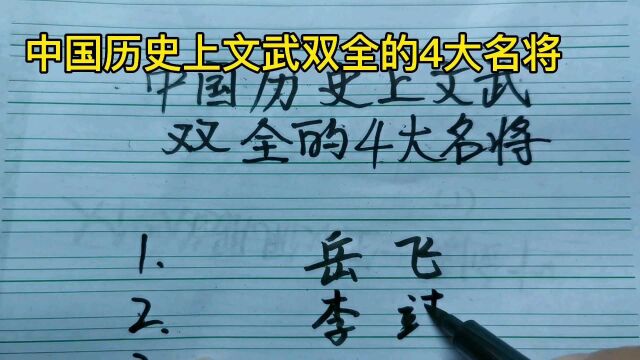 中国历史上文武双全的4大名将
中国历史上文武
双全的4大名将
1. 岳飞
2. 李